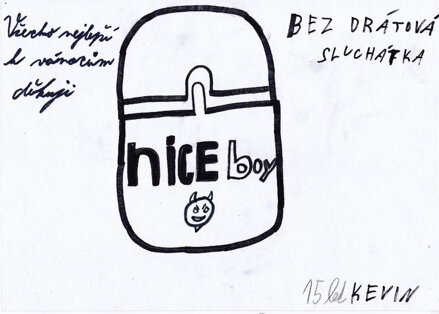 Všecho nejlepší
k vánocům
děkuji
BEZ DRÁTOVÁ
SLUCHÁTKA
nICE boy
15 let KEVIN